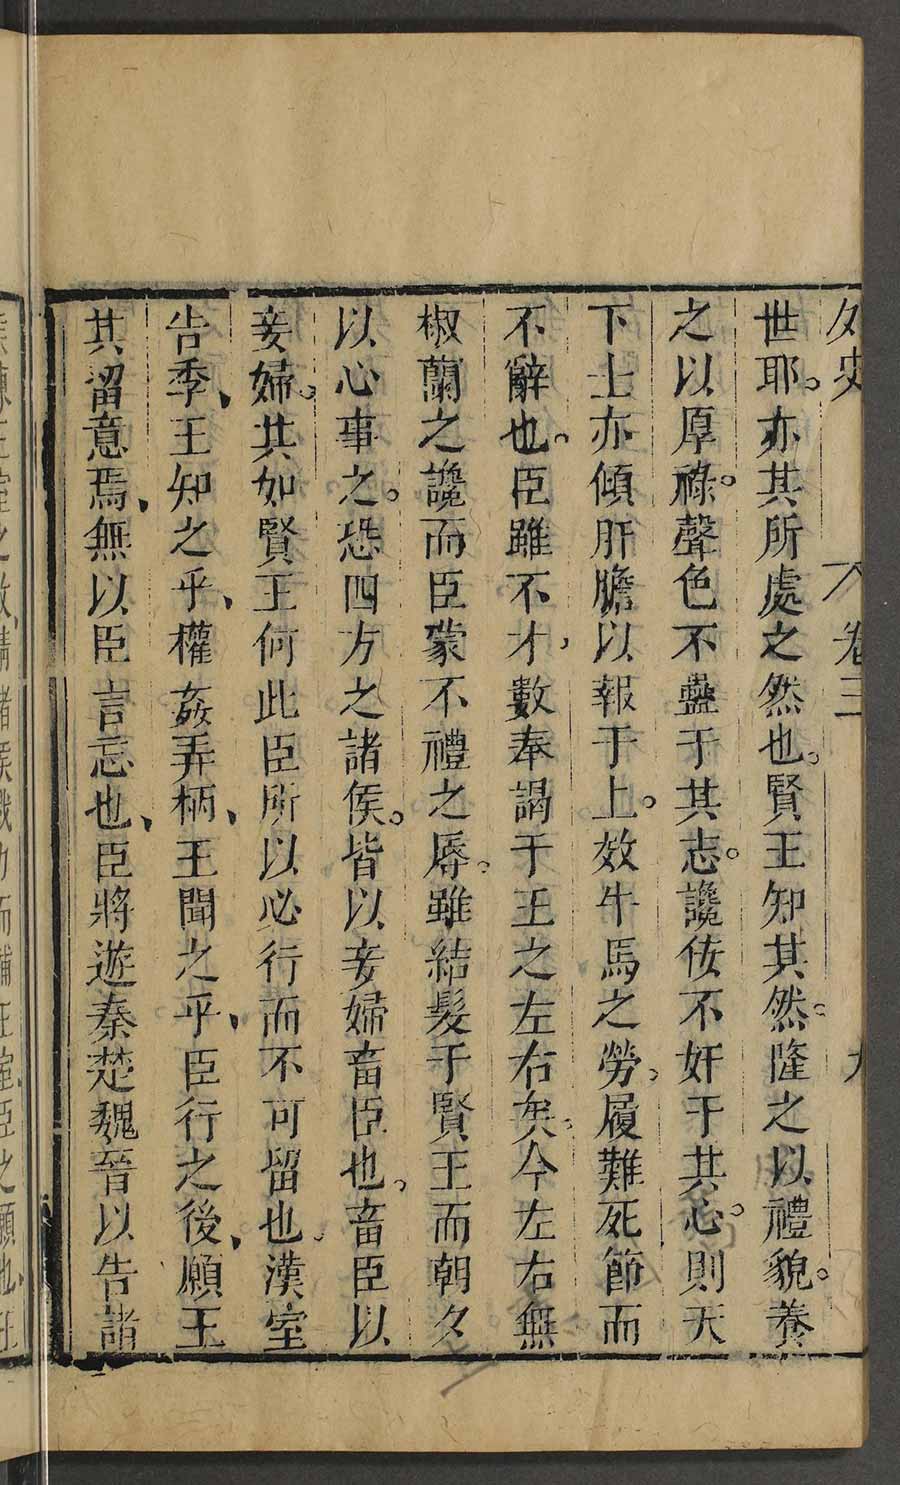 外史 卷三 九
世耶。亦其所處之然也。賢王知其然。隆之以禮貌。養
之以厚祿。聲色不蠱于其志。讒佞不奸于其心。則天
下士亦傾肝膽以報于上。效牛馬之勞。履難死節而
不辭也。臣雖不才，數奉謁于王之左右矣。今左右無
椒蘭之讒而臣蒙不禮之辱。雖結髮于賢王而朝夕
以心事之。恐四方之諸侯。皆以妾婦畜臣也。畜臣以
妾婦。其如賢王何此臣所以必行而不可留也。漢室
告季、王知之乎、權姦弄柄、王聞之乎、臣行之後、願王
其留意焉、無以臣言忘也、臣將遊秦楚魏晉以告諸
之 諸侯 力而輔王室臣之願也、王